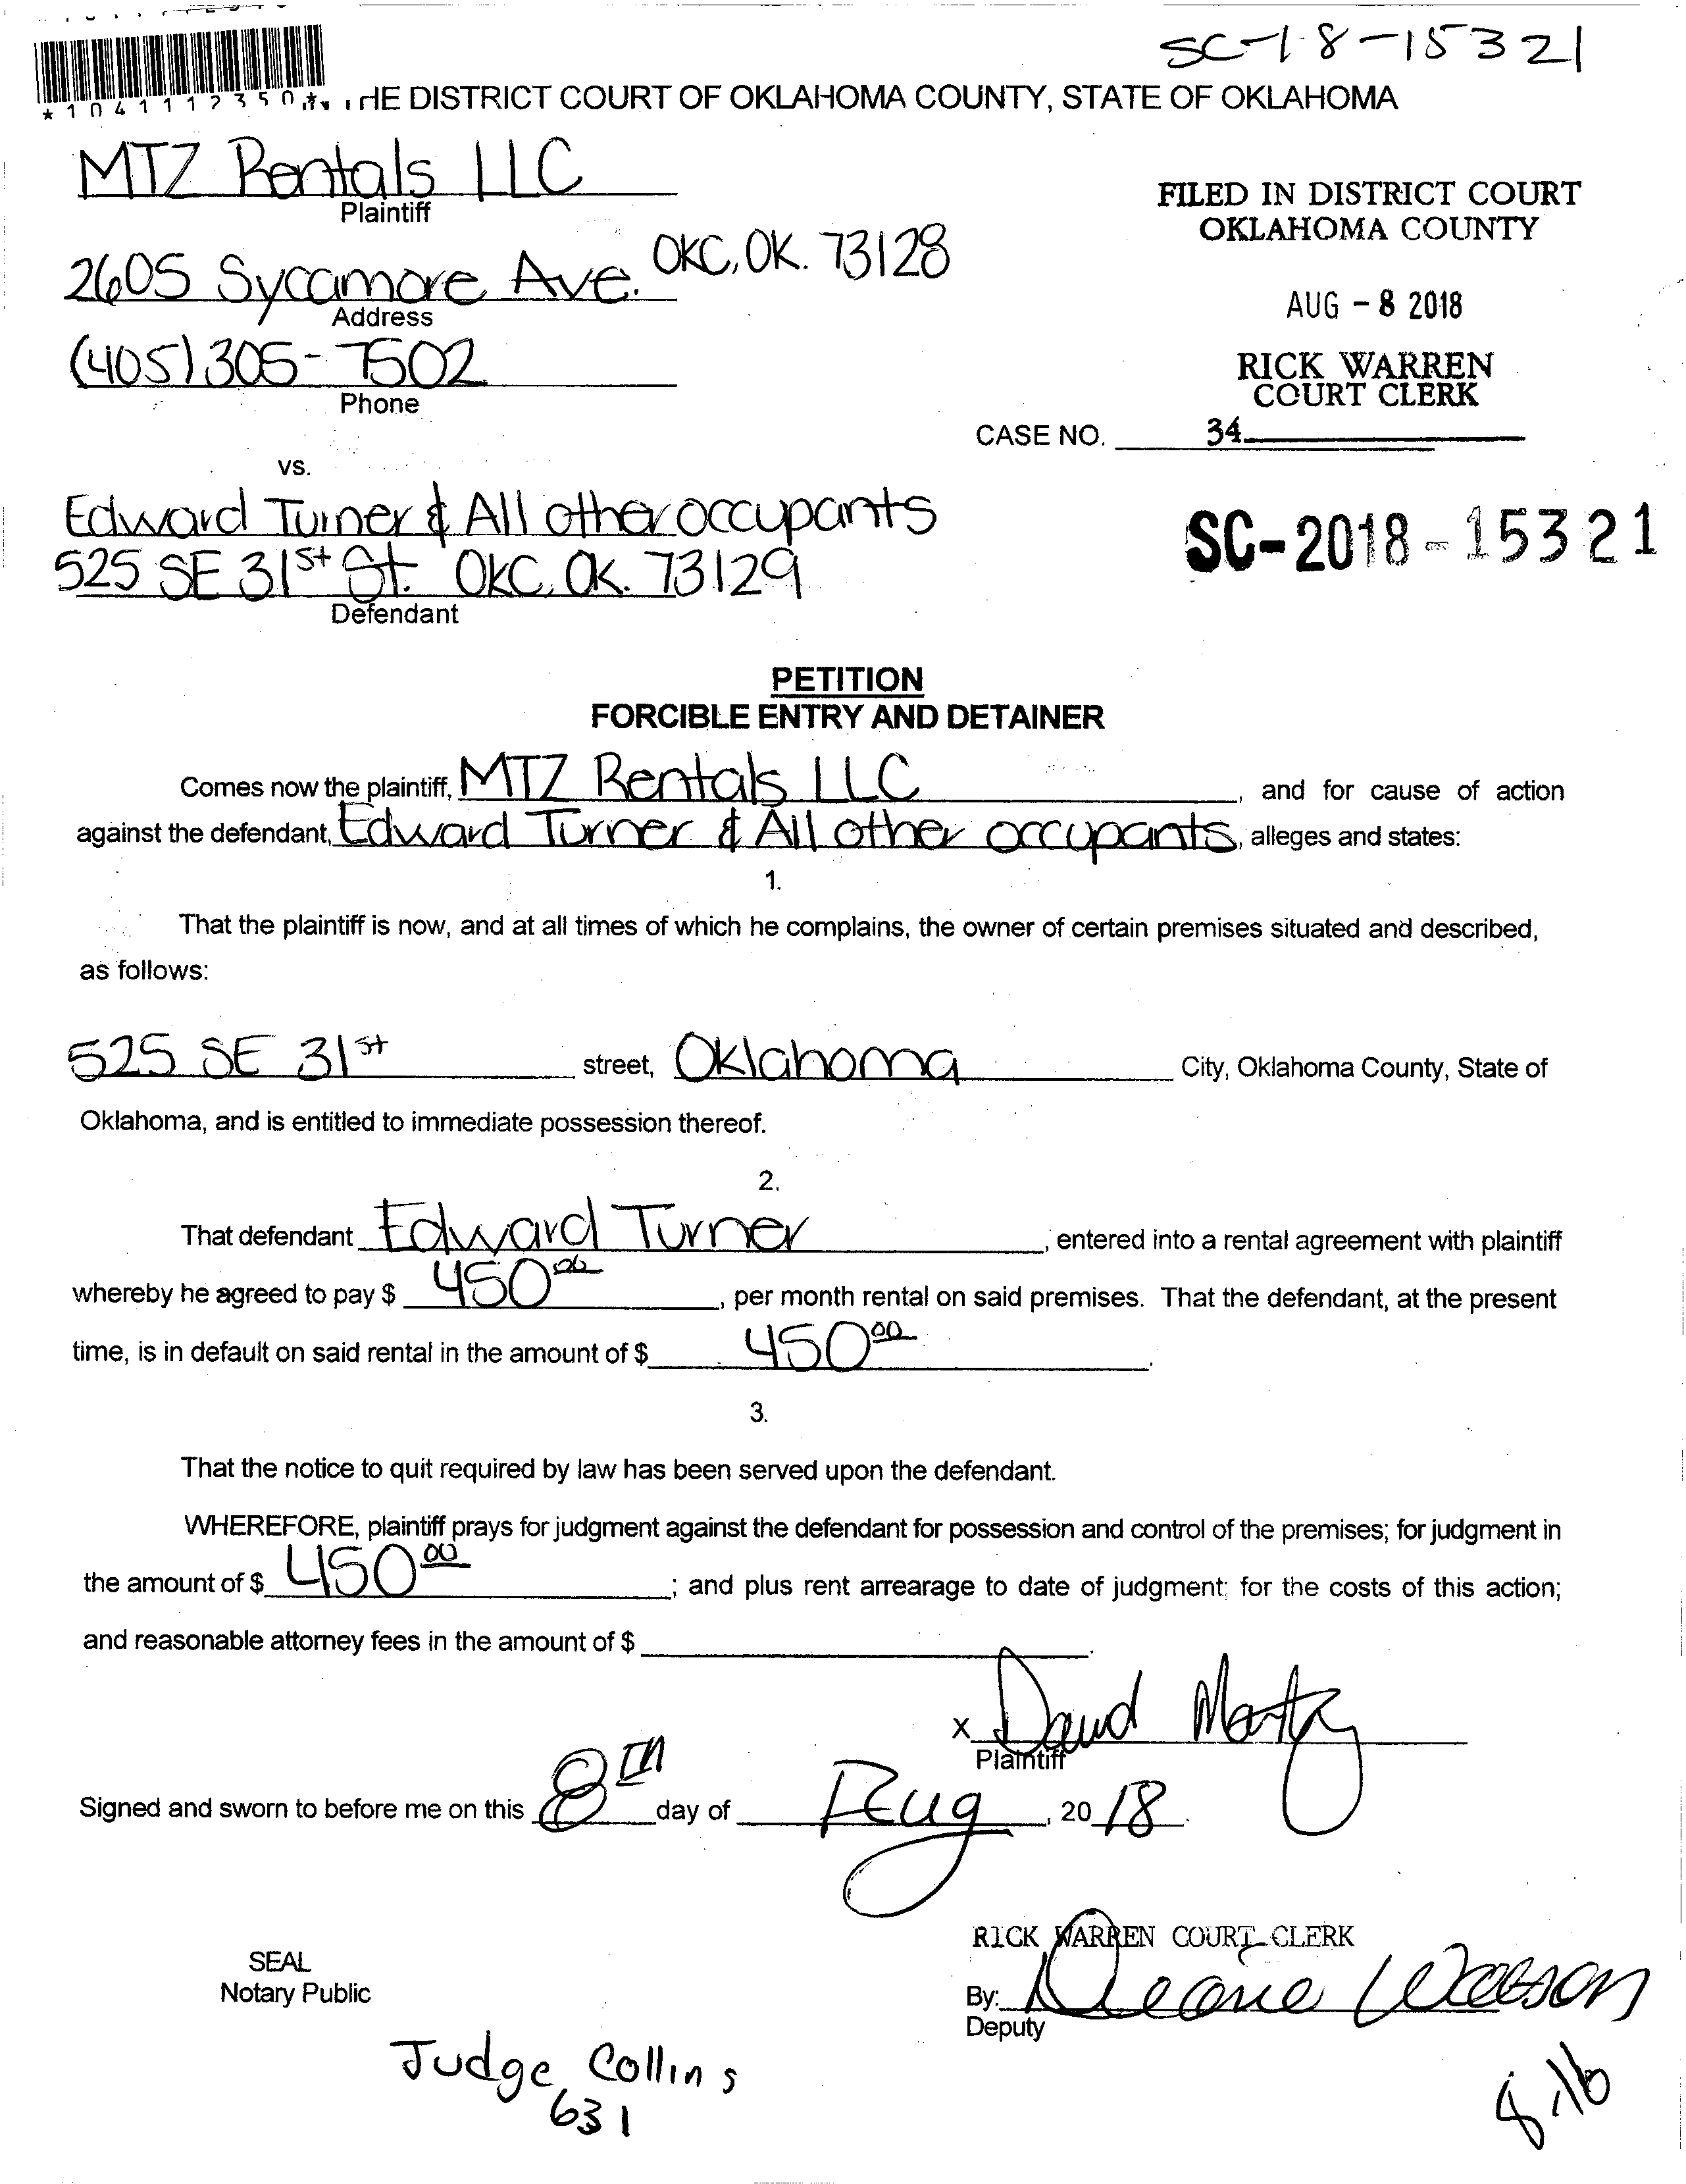 SC-18-15321
*1041112350*
HE DISTRICT COURT OF OKLAHOMA COUNTY, STATE OF OKLAHOMA
MTZ Rentals LLC
Plaintiff
FILED IN DISTRICT COURT
OKLAHOMA COUNTY
2605 Sycamore Ave. OKC, OK. 73128
Address
AUG - 8 2018
(405) 305-7502
Phone
RICK WARREN
COURT CLERK
CASE NO. 34
vs.
Edward Turner & All other occupants
525 SE 31st St. OKC, OK. 73129
Defendant
SC-2018-15321
PETITION
FORCIBLE ENTRY AND DETAINER
Comes now the plaintiff, MTZ Rentals LLC, and for cause of action
against the defendant, Edward Turner & All other occupants, alleges and states:
1.
That the plaintiff is now, and at all times of which he complains, the owner of certain premises situated and described,
as follows:
525 SE 31st street, Oklahoma City, Oklahoma County, State of
Oklahoma, and is entitled to immediate possession thereof.
2.
That defendant Edward Turner, entered into a rental agreement with plaintiff
whereby he agreed to pay $ 450 00, per month rental on said premises. That the defendant, at the present
time, is in default on said rental in the amount of $ 450 00.
3.
That the notice to quit required by law has been served upon the defendant.
WHEREFORE, plaintiff prays for judgment against the defendant for possession and control of the premises; for judgment in
the amount of $ 450 00; and plus rent arrearage to date of judgment; for the costs of this action;
and reasonable attorney fees in the amount of $ .
X David
Plaintiff
Signed and sworn to before me on this 8th day of Aug, 2018.
RICK WARREN COURT CLERK
SEAL
Notary Public
By: Watson
Deputy
Judge Collins
631
8-16